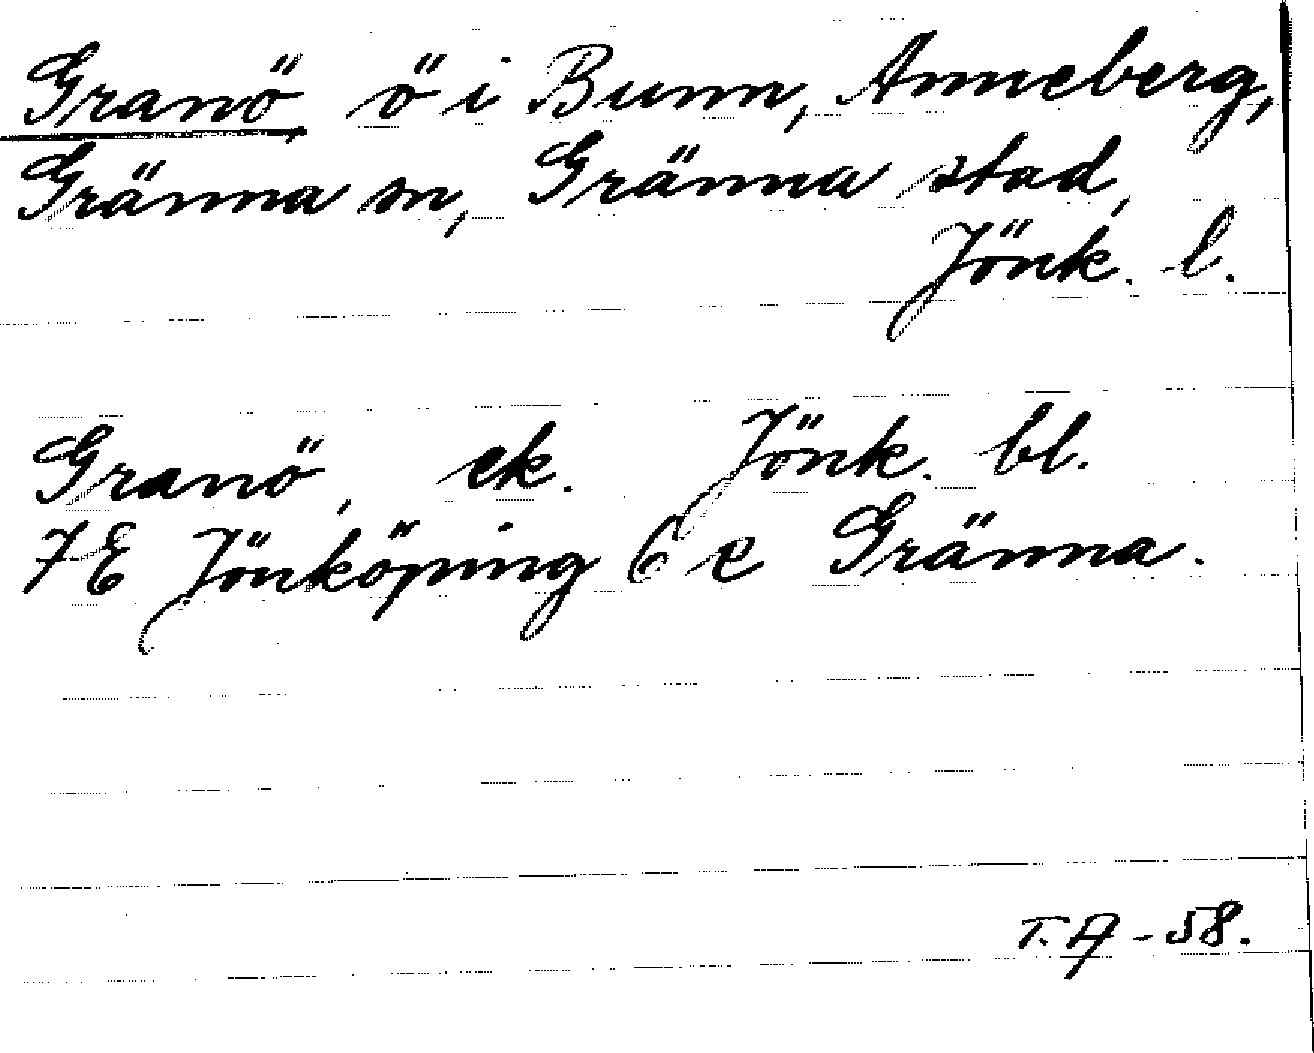 Granö, ö i Bunn, Anneberg,
Gränna sn, Gränna stad,
Jönk. l.
Granö, ek. Jönk. bl.
7 E Jönköping 6 e Gränna.
T. A - 58.